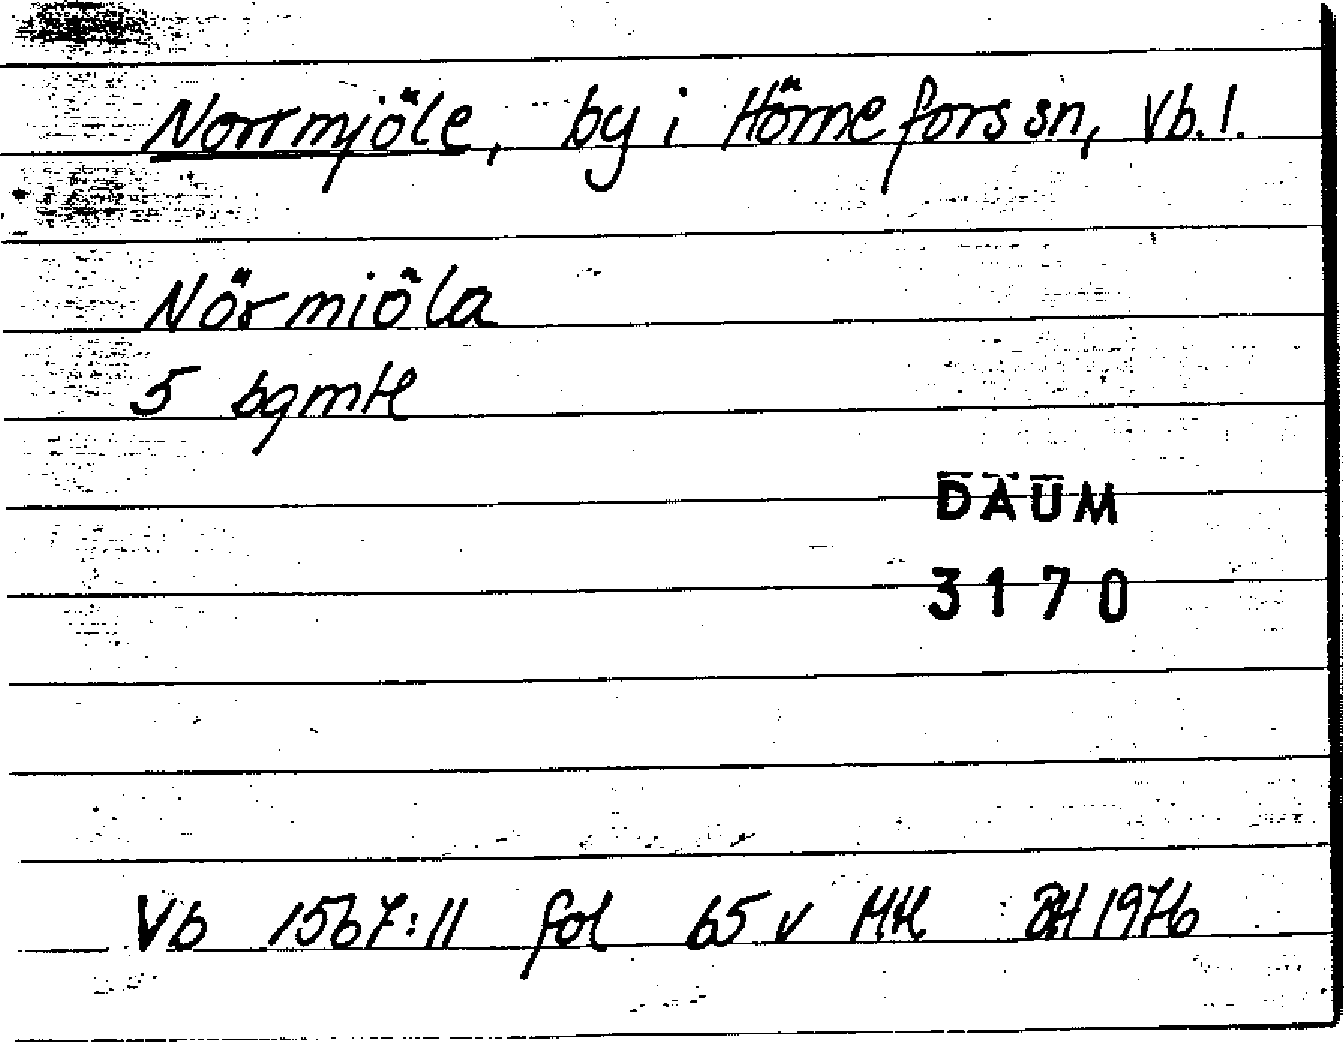 Norrmjöle, by i Hörnefors sn, Vb. l.
Nörmiöla
5 bgmtl
DAUM
3170
Vb 1567:11 fol 65 v HH 1976